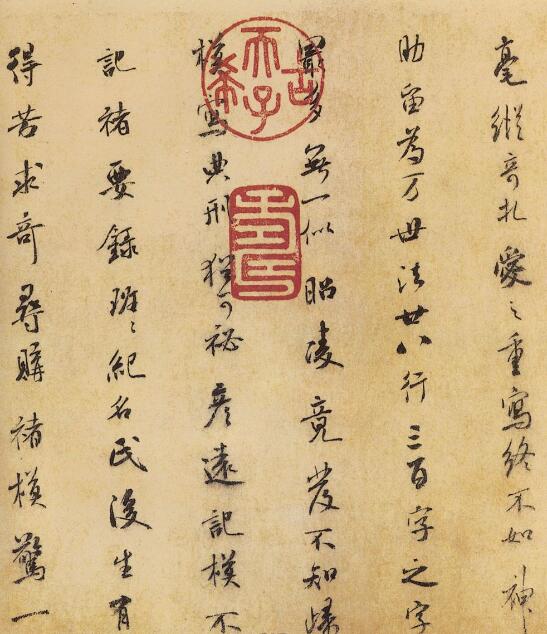 毫縱奇札愛之重寫終不如神
助留為万世法廿八行三百字之字
最多無一似昭陵竟發不知歸
模寫典刑猶可祕彥遠記模不
記褚要錄班〻紀名氏後生有
得苦求奇尋購褚模驚一
古希天子
壽